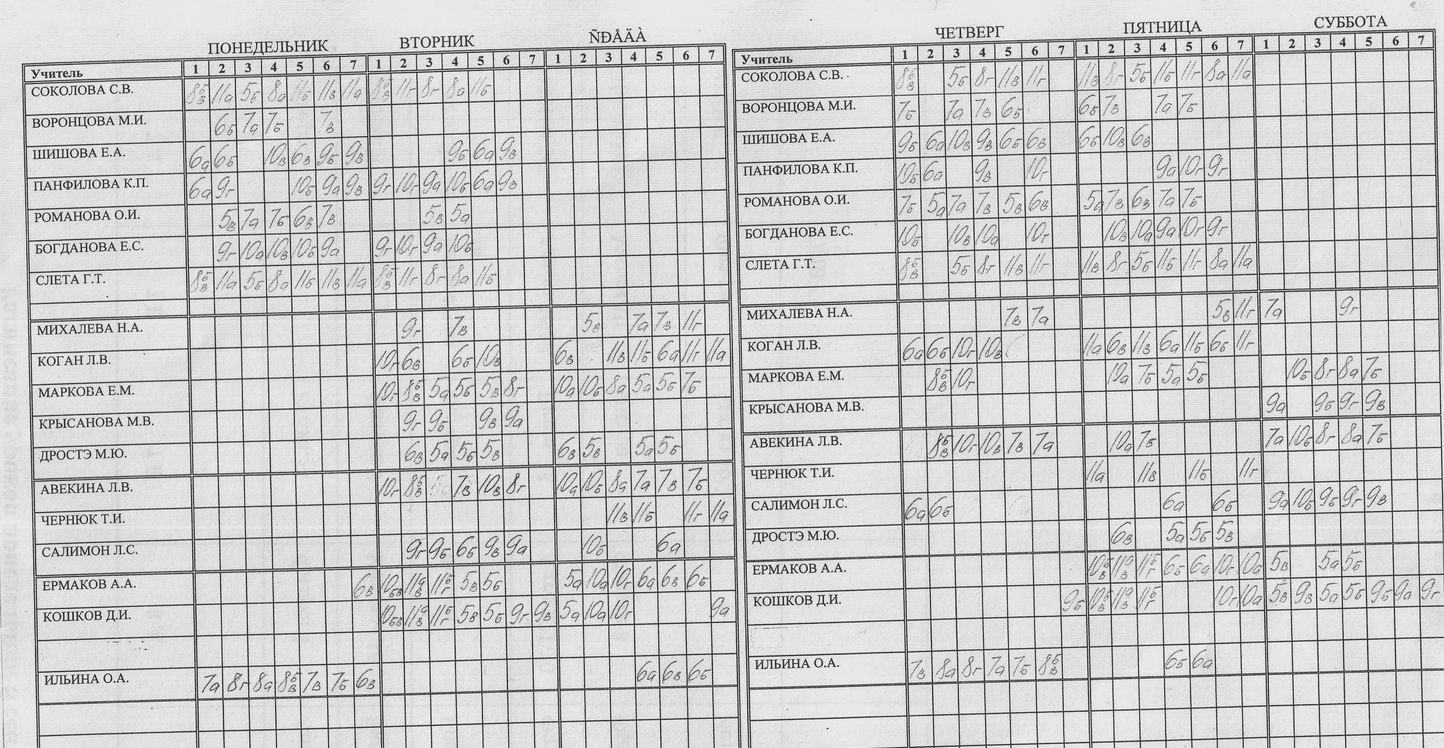 ПОНЕДЕЛЬНИК ВТОРНИК ÑÐÅÄÀ
Учитель 1 2 3 4 5 6 7 1 2 3 4 5 6 7 1 2 3 4 5 6 7
СОКОЛОВА С.В. 8б/в 11а 5б 8а 11б 11в 11а 8б/в 11г 8г 8а 11б
ВОРОНЦОВА М.И. 6б 7а 7б 7в
ШИШОВА Е.А. 6а 6б 10в 6в 9б 9в 9б 6а 9в
ПАНФИЛОВА К.П. 6а 9г 10б 9а 9в 9г 10г 9а 10б 6а 9в
РОМАНОВА О.И. 5в 7а 7б 6в 7в 5в 5а
БОГДАНОВА Е.С. 9г 10а 10в 10б 9а 9г 10г 9а 10б
СЛЕТА Г.Т. 8б/в 11а 5б 8а 11б 11в 11а 8б/в 11г 8г 8а 11б
МИХАЛЕВА Н.А. 9г 7в 5в 7а 7в 11г
КОГАН Л.В. 10г 6в 6б 10в 6в 11в 11б 6а 11г 11а
МАРКОВА Е.М. 10г 8б/в 5а 5б 5в 8г 10а 10б 8а 5а 5б 7б
КРЫСАНОВА М.В. 9г 9б 9в 9а
ДРОСТЭ М.Ю. 6в 5а 5б 5в 6в 5в 5а 5б
АВЕКИНА Л.В. 10г 8б/в 7в 10в 8г 10а 10б 8а 7а 7в 7б
ЧЕРНЮК Т.И. 11в 11б 11г 11а
САЛИМОН Л.С. 9г 9б 6б 9в 9а 10б 6а
ЕРМАКОВ А.А. 6в 10бв 11а/в 11б/г 5в 5б 5а 10а 10г 6а 6в 6б
КОШКОВ Д.И. 10бв 11а/в 11б/г 5в 5б 9г 9в 5а 10а 10г 9а
ИЛЬИНА О.А. 7а 8г 8а 8б/в 7в 7б 6в 6а 6в 6б
ЧЕТВЕРГ ПЯТНИЦА СУББОТА
Учитель 1 2 3 4 5 6 7 1 2 3 4 5 6 7 1 2 3 4 5 6 7
СОКОЛОВА С.В. 8б/в 5б 8г 11в 11г 11в 8г 5б 11б 11г 8а 11а
ВОРОНЦОВА М.И. 7б 7а 7в 6б 6б 7в 7а 7б
ШИШОВА Е.А. 9б 6а 10в 9в 6б 6в 6б 10в 6в
ПАНФИЛОВА К.П. 10б 6а 9в 10г 9а 10г 9г
РОМАНОВА О.И. 7б 5а 7а 7в 5в 6в 5а 7в 6в 7а 7б
БОГДАНОВА Е.С. 10б 10в 10а 10г 10в 10а 9а 10г 9г
СЛЕТА Г.Т. 8б/в 5б 8г 11в 11г 11в 8г 5б 11б 11г 8а 11а
МИХАЛЕВА Н.А. 7в 7а 5в 11г 7а 9г
КОГАН Л.В. 6а 6б 10г 10в 11а 6в 11в 6а 11б 6б 11г
МАРКОВА Е.М. 8б/в 10г 10а 7б 5а 5б 10б 8г 8а 7б
КРЫСАНОВА М.В. 9а 9б 9г 9в
АВЕКИНА Л.В. 8б/в 10г 10в 7в 7а 10а 7б 7а 10б 8г 8а 7б
ЧЕРНЮК Т.И. 11а 11в 11б 11г
САЛИМОН Л.С. 6а 6б 6а 6б 9а 10б 9б 9г 9в
ДРОСТЭ М.Ю. 6в 5а 5б 5в
ЕРМАКОВ А.А. 10б/в 11а/в 11б/г 6б 6а 10г 10а 5в 5а 5б
КОШКОВ Д.И. 9б 10б/в 11а/в 11б/г 10г 10а 5в 9в 5а 5б 9б 9а 9г
ИЛЬИНА О.А. 7в 8а 8г 7а 7б 8б/в 6б 6а